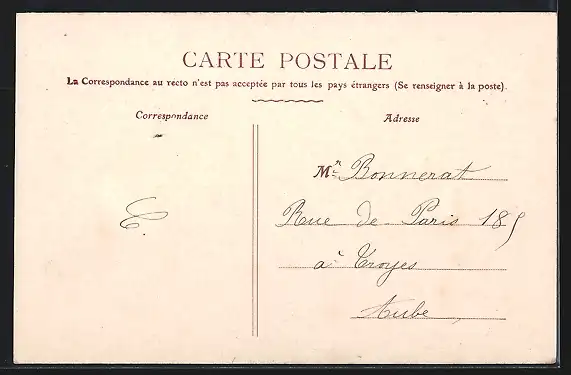 CARTE POSTALE
La Correspondance au recto n'est pas acceptée par tous les pays étrangers (Se renseigner à la poste).
Correspondance
Adresse
Mr Bonnerat
Rue de Paris 185
à Troyes
Aube